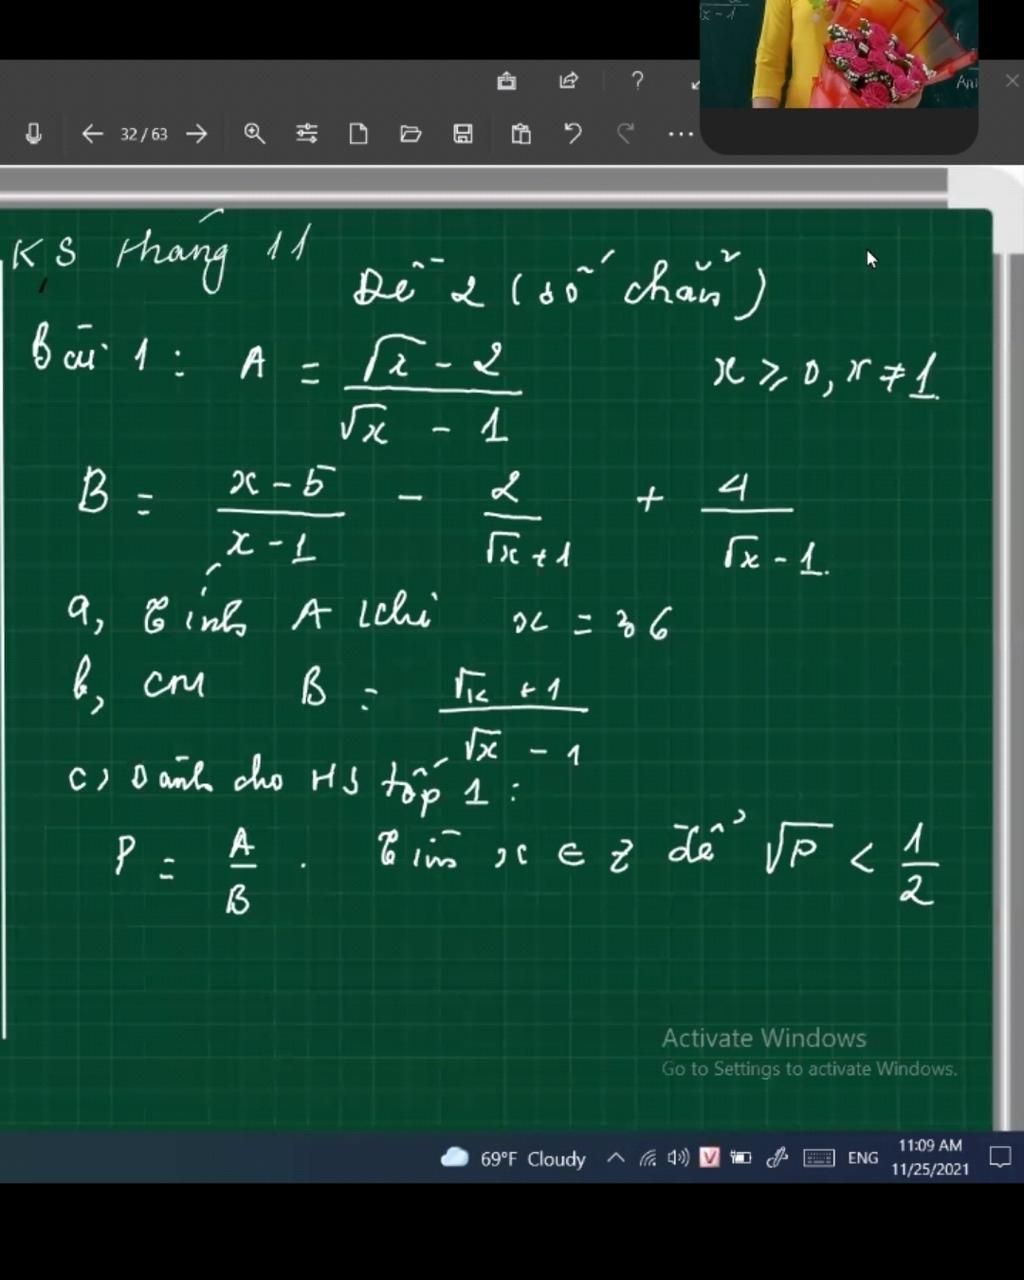 √x - 1
32 / 63
KS tháng 11
Đề 2 (số chẵn)
Bài 1: A = (√x - 2)/(√x - 1) x ≥ 0, x ≠ 1
B = (x - 5)/(x - 1) - 2/(√x + 1) + 4/(√x - 1).
a, Tính A khi x = 36
b, cm B = (√x + 1)/(√x - 1)
c, Dành cho HS tốp 1:
P = A/B . Tìm x ∈ Z để √P < 1/2
Activate Windows
Go to Settings to activate Windows.
69°F Cloudy ENG 11:09 AM
11/25/2021